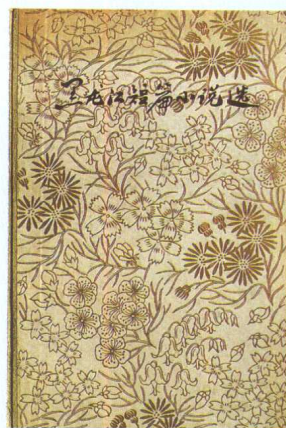 黑龙江短篇小说选